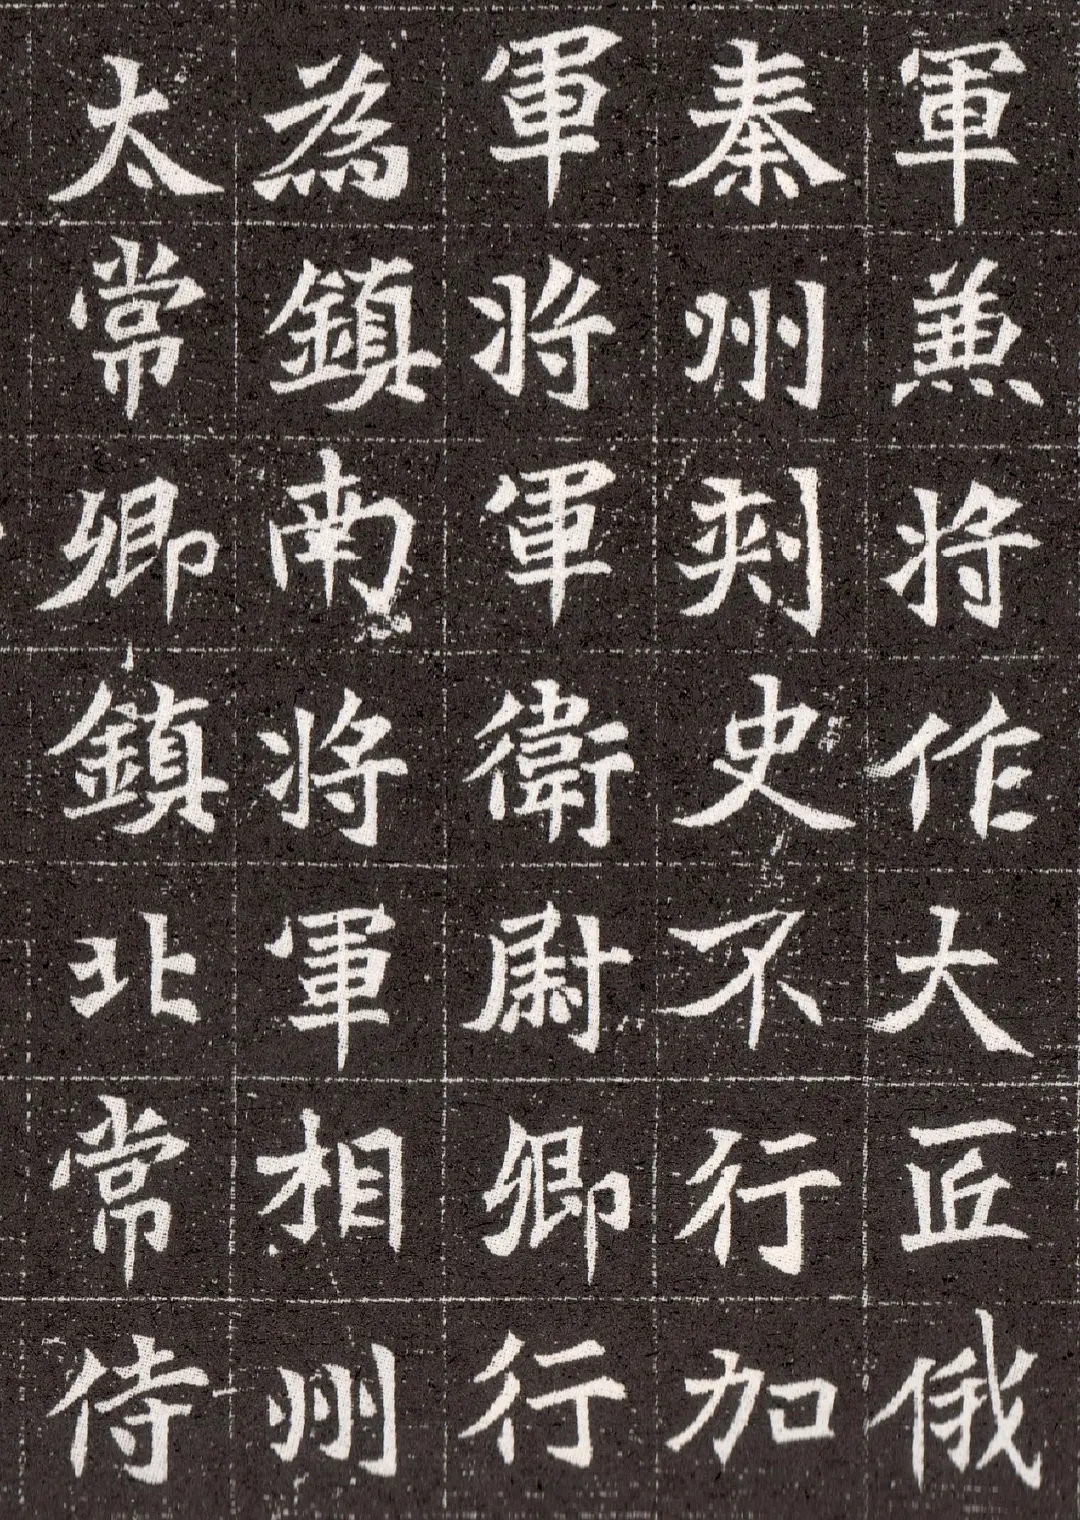 軍兼將作大匠俄
秦州刾史不行加
軍將軍衛尉卿行
為鎮南將軍相州
太常卿鎮北常侍